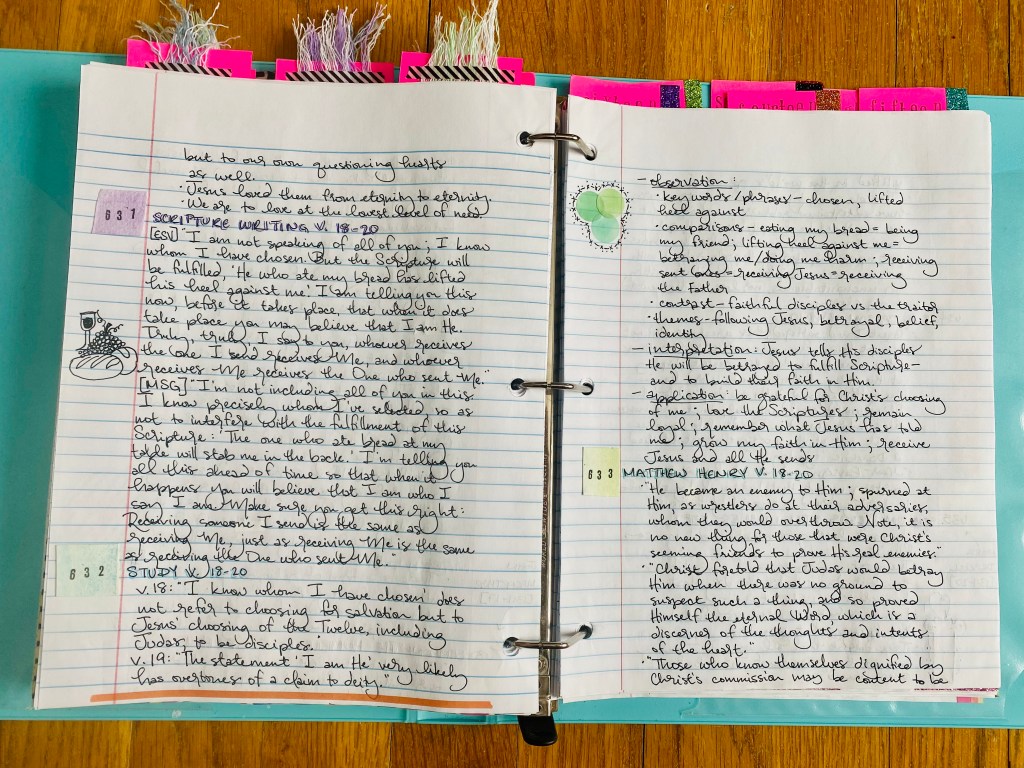 but to our own questioning hearts
as well.
· Jesus loved them from eternity to eternity.
· We are to love at the lowest level of need
631
SCRIPTURE WRITING V. 18-20
[ESV] "I am not speaking of all of you; I know
whom I have chosen. But the Scripture will
be fulfilled, 'He who ate my bread has lifted
his heel against me.' I am telling you this
now, before it takes place, that when it does
take place you may believe that I am He.
Truly, truly, I say to you, whoever receives
the One I send receives Me, and whoever
receives Me receives the One who sent Me."
[MSG] "I'm not including all of you in this.
I know precisely whom I've selected, so as
not to interfere with the fulfillment of this
Scripture: 'The one who ate bread at my
table will stab me in the back.' I'm telling you
all this ahead of time so that when it
happens you will believe that I am who I
say I am. Make sure you get this right:
Receiving someone I send is the same as
receiving Me, just as receiving Me is the same
as receiving the One who sent Me."
632
STUDY V. 18-20
v. 18: "'I know whom I have chosen' does
not refer to choosing for salvation but to
Jesus' choosing of the Twelve, including
Judas, to be disciples."
v. 19: "The statement 'I am He' very likely
has overtones of a claim to deity."
- observation:
· keywords/phrases - chosen, lifted
heel against
· comparisons - eating my bread = being
my friend; lifting heel against me =
betraying me/doing me harm; receiving
sent ones = receiving Jesus = receiving
the Father
· contrast - faithful disciples vs. the traitor
· themes - following Jesus, betrayal, belief,
identity
- interpretation: Jesus tells His disciples
He will be betrayed to fulfill Scripture -
and to build their faith in Him.
- application: be grateful for Christ's choosing
of me; love the Scriptures; remain
loyal; remember what Jesus has told
me; grow my faith in Him; receive
Jesus and all He sends
633
MATTHEW HENRY V. 18-20
· "He became an enemy to Him; spurned at
Him, as wrestlers do at their adversaries,
whom they would overthrow. Note, it is
no new thing for those that were Christ's
seeming friends to prove His real enemies."
· "Christ foretold that Judas would betray
Him when there was no ground to
suspect such a thing, and so proved
Himself the eternal Word, which is a
discerner of the thoughts and intents
of the heart."
· "Those who know themselves dignified by
Christ's commission may be content to be